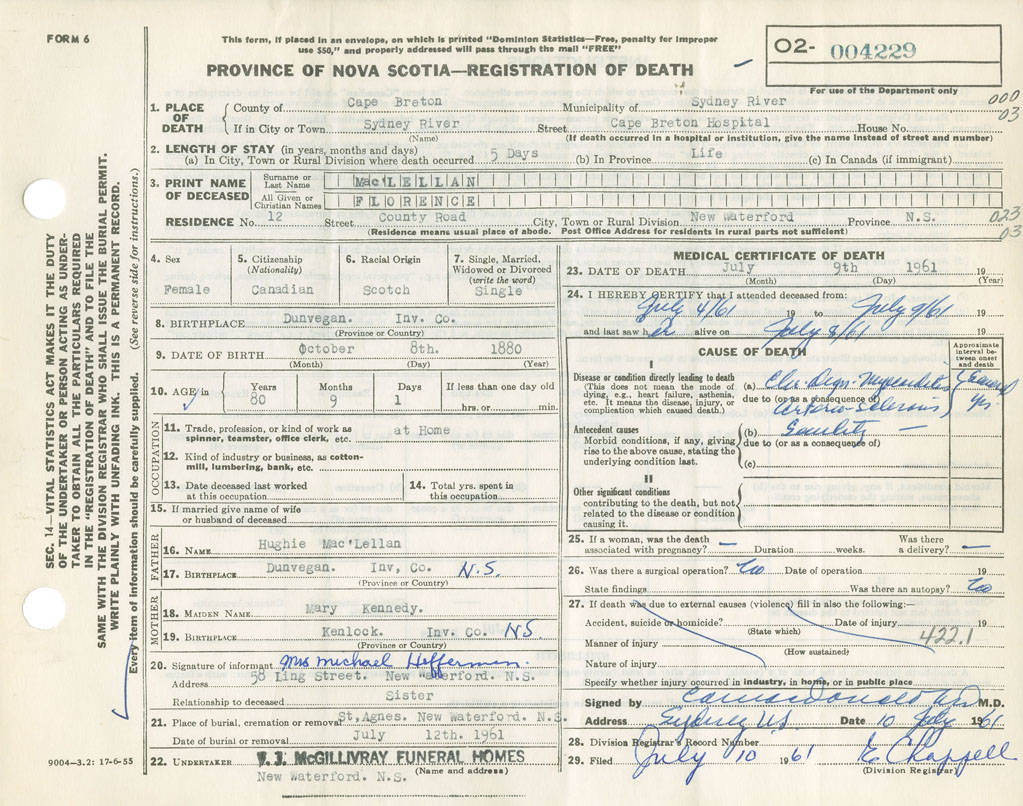 FORM 6
This form, if placed in an envelope, on which is printed "Dominion Statistics—Free, penalty for improper
use $50," and properly addressed will pass through the mail "FREE"
PROVINCE OF NOVA SCOTIA—REGISTRATION OF DEATH
02- 004229
For use of the Department only
000
03
1. PLACE OF DEATH
County of Cape Breton Municipality of Sydney River
If in City or Town Sydney River Street Cape Breton Hospital House No.
(Name) (If death occurred in a hospital or institution, give the name instead of street and number)
2. LENGTH OF STAY (in years, months and days)
(a) In City, Town or Rural Division where death occurred 5 Days (b) In Province Life (c) In Canada (if immigrant)
3. PRINT NAME OF DECEASED
Surname or Last Name Mac'LELLAN
All Given or Christian Names FLORENCE
RESIDENCE No. 12 Street County Road City, Town or Rural Division New Waterford Province N.S.
023
03
(Residence means usual place of abode. Post Office Address for residents in rural parts not sufficient)
4. Sex
Female
5. Citizenship
(Nationality)
Canadian
6. Racial Origin
Scotch
7. Single, Married,
Widowed or Divorced
(write the word)
Single
8. BIRTHPLACE Dunvegan. Inv. Co.
(Province or Country)
9. DATE OF BIRTH October 8th. 1880
(Month) (Day) (Year)
10. AGE in
Years Months Days If less than one day old
80 9 1 hrs. or min.
OCCUPATION
11. Trade, profession, or kind of work as
spinner, teamster, office clerk, etc. at Home
12. Kind of industry or business, as cotton-
mill, lumbering, bank, etc.
13. Date deceased last worked
at this occupation
14. Total yrs. spent in
this occupation
15. If married give name of wife
or husband of deceased
FATHER
16. NAME Hughie Mac'Lellan
17. BIRTHPLACE Dunvegan. Inv, Co. N.S.
(Province or Country)
MOTHER
18. MAIDEN NAME Mary Kennedy.
19. BIRTHPLACE Kenlock. Inv. Co. NS.
(Province or Country)
20. Signature of informant Mrs Michael Heffernen.
Address 58 Ling Street. New Waterford. N.S.
Relationship to deceased Sister
21. Place of burial, cremation or removal St, Agnes. New Waterford. N.S.
Date of burial or removal July 12th. 1961
22. UNDERTAKER McGILLIVRAY FUNERAL HOMES
New Waterford. N.S. (Name and address)
MEDICAL CERTIFICATE OF DEATH
23. DATE OF DEATH July 9th 1961 19
(Month) (Day) (Year)
24. I HEREBY CERTIFY that I attended deceased from:
July 4/61 19 to July 9/61
and last saw her alive on July 9/61 19
CAUSE OF DEATH
Approximate
interval be-
tween onset
and death
I
Disease or condition directly leading to death
(This does not mean the mode of
dying, e.g., heart failure, asthenia,
etc. It means the disease, injury, or
complication which caused death.)
(a)
due to (or as a consequence of)
yrs
Antecedent causes
Morbid conditions, if any, giving
rise to the above cause, stating the
underlying condition last.
(b)
due to (or as a consequence of)
(c)
II
Other significant conditions
contributing to the death, but not
related to the disease or condition
causing it.
25. If a woman, was the death
associated with pregnancy? — Duration weeks. Was there
a delivery? —
26. Was there a surgical operation? No Date of operation 19
State findings Was there an autopsy? No
27. If death was due to external causes (violence) fill in also the following:—
Accident, suicide or homicide? Date of injury 19
(State which)
422.1
Manner of injury
(How sustained)
Nature of injury
Specify whether injury occurred in industry, in home, or in public place
Signed by M.D.
Address Sydney N.S. Date 10 July 1961
28. Division Registrar's Record Number
29. Filed July 10 1961 E Chappell
(Division Registrar)
SEC. 14—VITAL STATISTICS ACT MAKES IT THE DUTY
OF THE UNDERTAKER OR PERSON ACTING AS UNDER-
TAKER TO OBTAIN ALL THE PARTICULARS REQUIRED
IN THE "REGISTRATION OF DEATH" AND TO FILE THE
SAME WITH THE DIVISION REGISTRAR WHO SHALL ISSUE THE BURIAL PERMIT.
WRITE PLAINLY WITH UNFADING INK. THIS IS A PERMANENT RECORD.
Every item of information should be carefully supplied. (See reverse side for instructions.)
9004-3.2: 17-6-55